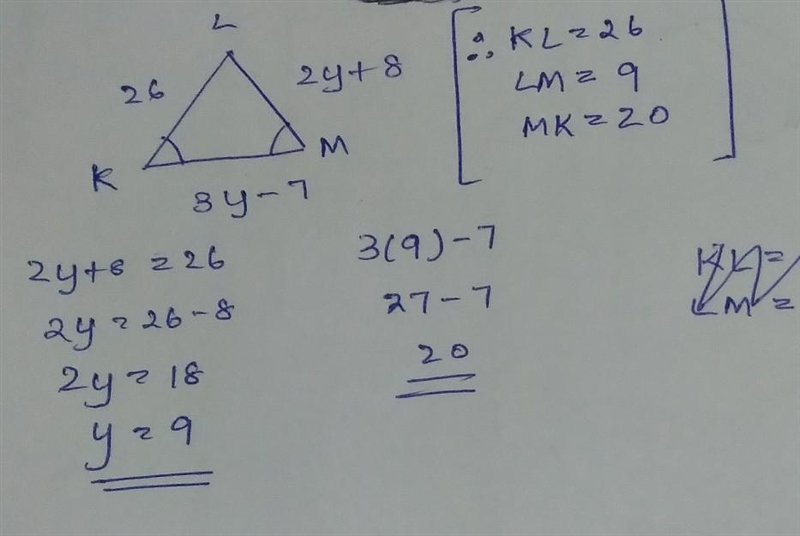 L
26
2y+8
K
M
3y-7
∴ KL = 26
LM = 9
MK = 20
2y+8 = 26
2y = 26-8
2y = 18
y = 9
3(9)-7
27-7
20
KL =
LM =